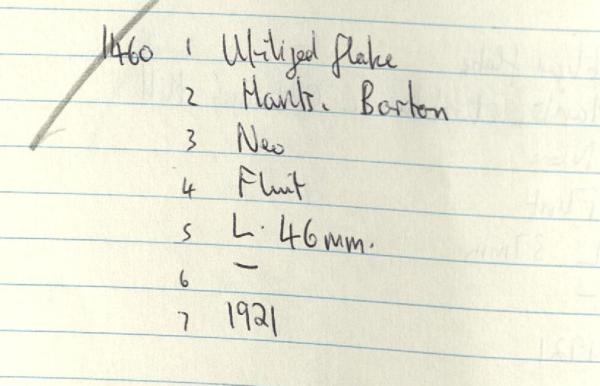 1460 1 Utilized flake
2 Hants. Barton
3 Neo
4 Flint
5 L. 46mm.
6 –
7 1921